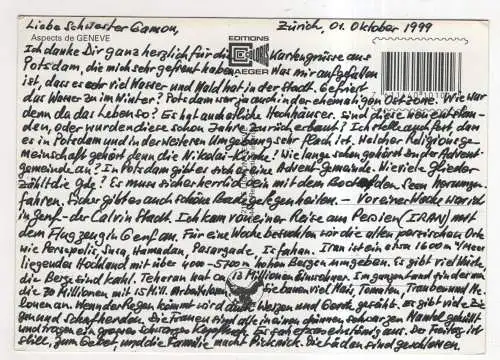 Liebe Schwester Gamon, Zürich, 01. Oktober 1999
Aspects de GENEVE EDITIONS
Ich danke Dir ganz herzlich für die Kartengrüsse aus
Potsdam, die mich sehr gefreut haben. Was mir aufgefallen
JAEGER
ist, dass es sehr viel Wasser und Wald hat in der Stadt. Gefriert
das Wasser zu im Winter? Potsdam war ja auch in der ehemaligen Ostzone. Wie war
denn da das Leben so? Es hat auch etliche Hochhäuser. Sind diese neu entstan-
den, oder wurden diese schon Jahre zurück erbaut? Ich stelle auch fest, dass
es in Potsdam und in der weiteren Umgebung sehr flach ist. Welcher Religionsge-
meinschaft gehört denn die Nikolai-Kirche? Wie lange schon gehörst Du der Advent-
gemeinde an? In Potsdam gibt es sicher eine Advent-Gemeinde. Wieviele Glieder
zählt die Gde? Es muss sicher herrlich sein mit dem Boot auf den Seen herumzu-
fahren. Sicher gibt es auch schöne Badegelegenheiten. - Vor einer Woche war ich
in Genf - der Calvin Stadt. Ich kam von einer Reise aus Persien (IRAN) mit
dem Flugzeug in Genf an. Für eine Woche besuchten wir die alten persischen Orte
wie Persepolis, Susa, Hamadan, Pasargade, Isfahan. Iran ist ein etwa 1600 m ü/Meer
liegendes Hochland mit über 4000-5700 m hohen Bergen umgeben. Es gibt viel
die Berge sind kahl. Teheran hat ca. 12 Millionen Einwohner. Im ganzen Land sind er
die 70 Millionen mit 15 Mill. Sie bauen viel Mais, Tomaten, Trauben und Me-
lonen an. Weizen und Gerste gesät. Es gibt viel Zie-
gen und Schafherden. Die Frauen sind alle in einen dünnen schwarzen Mantel gehüllt
und tragen ein grosses schwarzes Kopftuch. Der Freitag ist
still, zum Gebet und die Familie macht Picknick. Die Läden sind geschlossen.